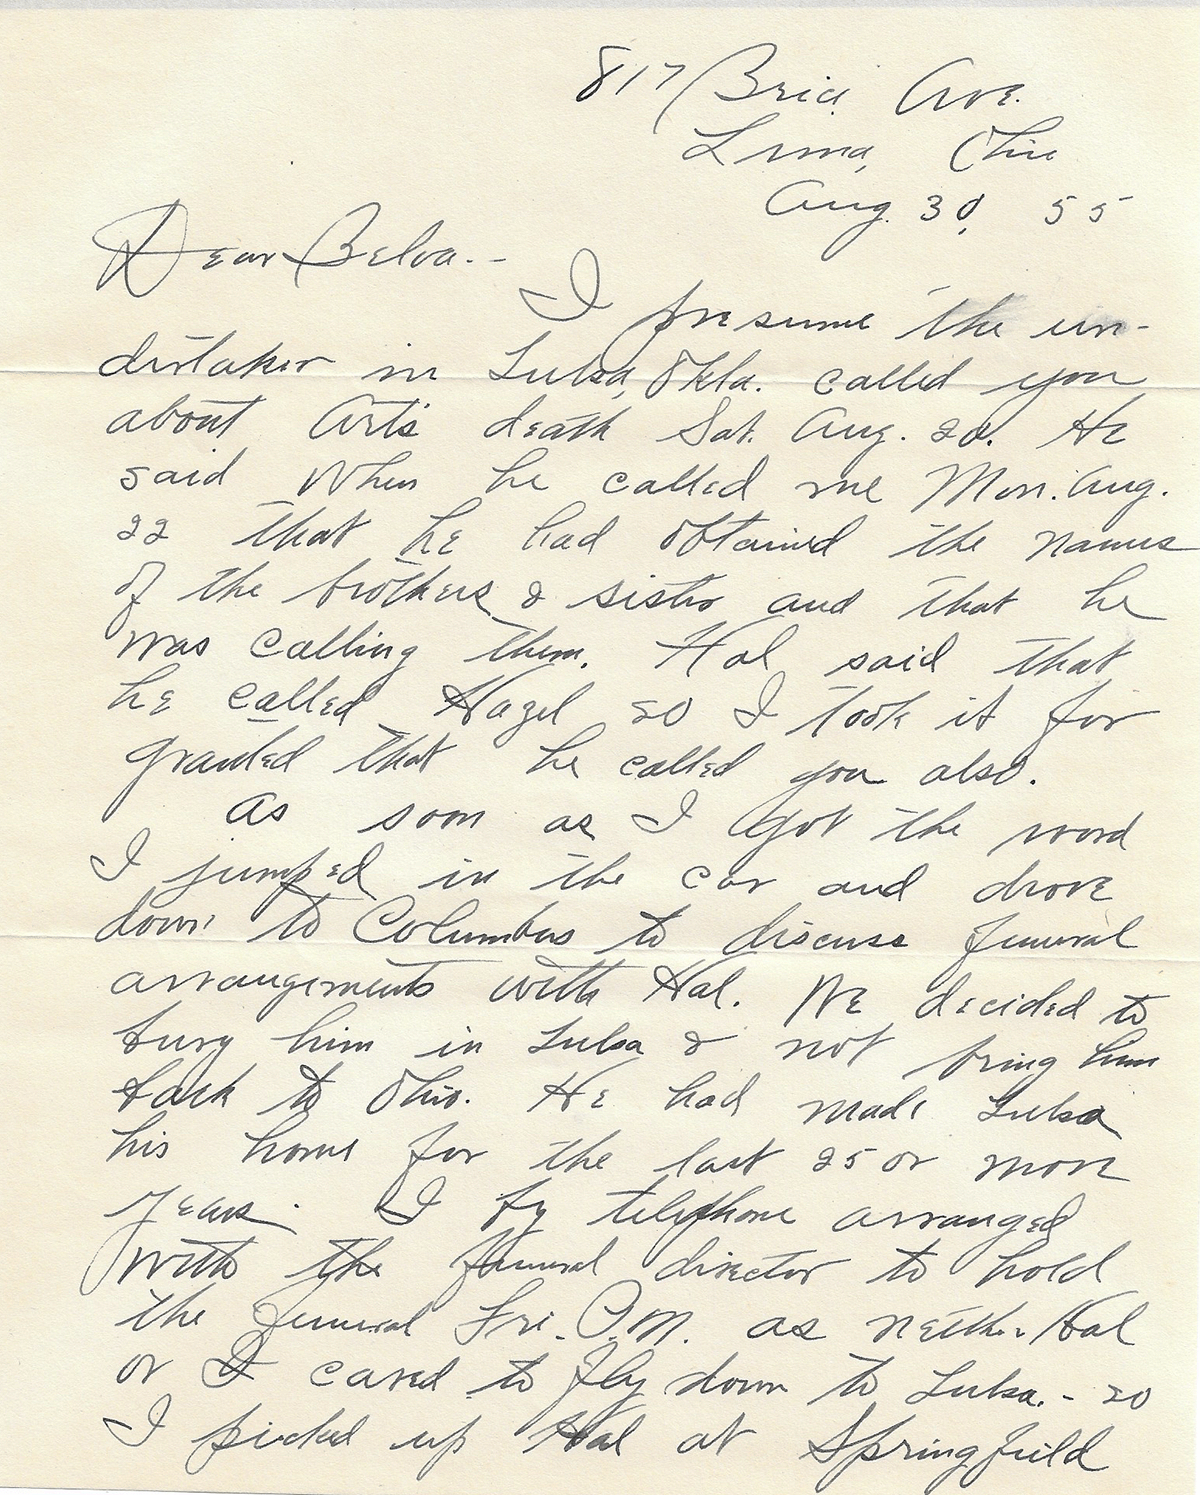 817 Brice Ave.
Lima, Ohio
Aug. 30, 55
Dear Belva.--
I presume the un-
dertaker in Tulsa, Okla. called you
about Art's death Sat. Aug. 20. He
said when he called me Mon. Aug.
22 that he had obtained the names
of the brothers & sister and that he
was calling them. Hal said that
he called Hazel so I took it for
granted that he called you also.
As soon as I got the word
I jumped in the car and drove
down to Columbus to discuss funeral
arrangements with Hal. We decided to
bury him in Tulsa & not bring him
back to Ohio. He had made Tulsa
his home for the last 25 or more
years. I by telephone arranged
with the funeral director to hold
the funeral Fri. P.M. as neither Hal
or I cared to fly down to Tulsa. - so
I picked up Hal at Springfield